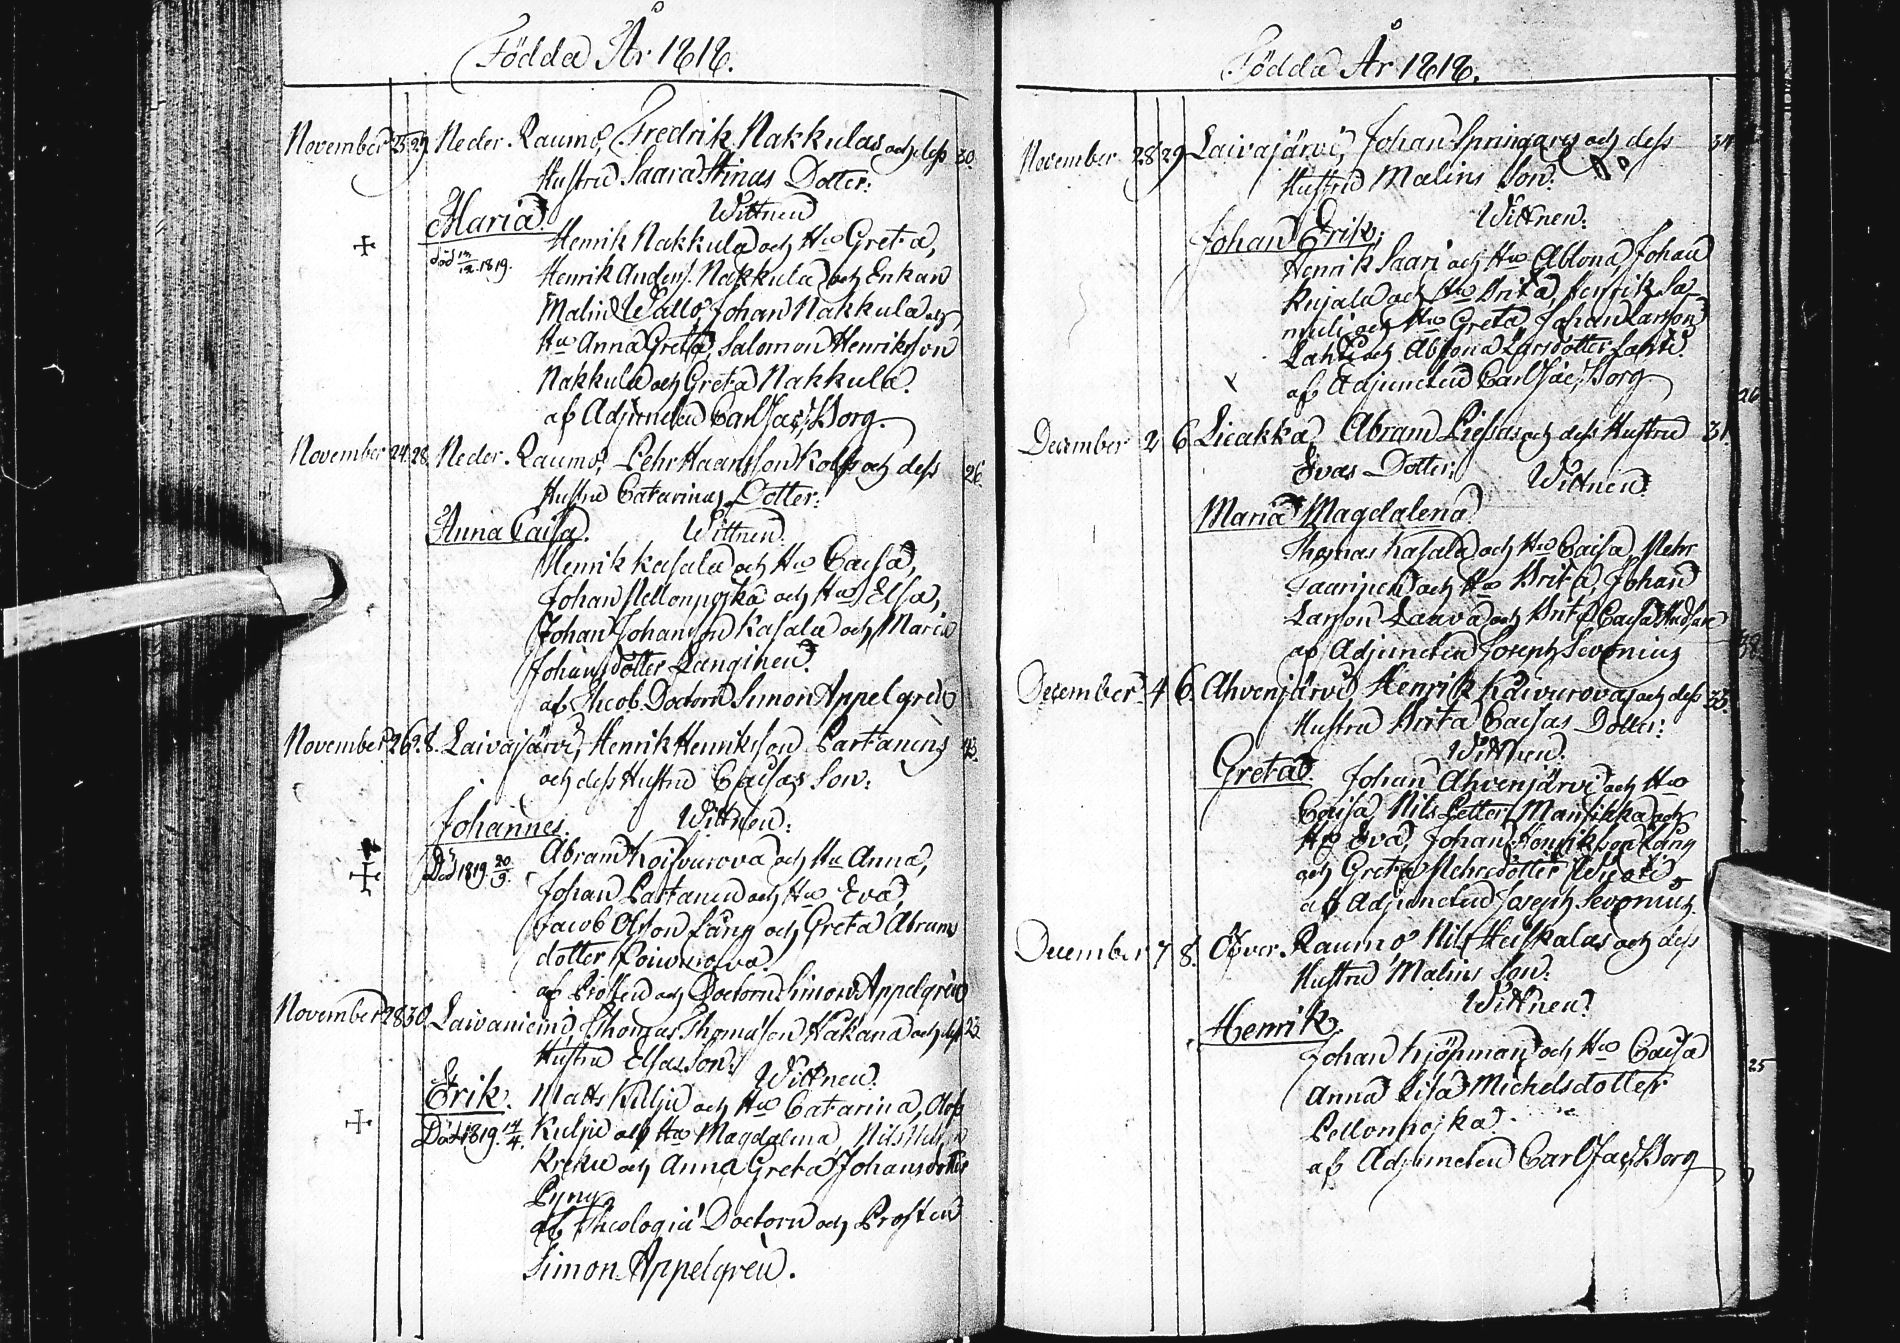 Födda År 1818.
November 25 29 Neder Raumo, Fredrik Nakkulas och dess 30.
Hustru Saara Stinas Dotter:
Maria. Wittnen
död 13/12 1819. Henrik Nakkula och Hu Greta,
Henrik Anders. Nakkula och Enkan
Malin Wallo, Johan Nakkula och
Hu Anna Greta, Salomon Henriksson
Nakkula och Greta Nakkula.
af Adjuncten Carl Jac. Borg.
November 24. 28. Neder Raumo, Pehr Haansson Kolps och dess 26.
Hustru Catarinas Dotter:
Anna Caisa. Wittnen.
Henrik Kasala och Hu Caisa,
Johan Pellonpojka och Hu Elsa,
Johan Johansson Kasala och Maria
Johansdotter Länginen.
af Theol. Doctorn Simon Appelgren
November 26 28. Laivajärvi, Henrik Henriksson Partanens 43.
och dess Hustru Caisas Son:
Johannes. Wittnen:
Död 1819 20/9. Abram Koivurova och Hu Anna,
Johan Partanen och Hu Eva,
Jacob Olsson Lång och Greta Abrams
dotter Koivurova.
af Prosten och Doctorn Simon Appelgren
November 28 30 Laivaniemi, Thomas Thomasson Hakana och dess 23
Hustru Elsas Son:
Erik. Wittnen.
Matts Kuljú och Hu Catarina, Olof
Död 1819. 14/4. Kuljú och Hu Magdalena, Nils
Kreku och Anna Greta Johansdotter
Pyny
af Theologiæ Doctorn och Prosten
Simon Appelgren.
Födda År 1818.
November 28 29 Laivajärvi, Johan Springars och dess 34
Hustru Malins Son.
Johan Erik. Wittnen.
Henrik Saari och Hu Ablona, Johan
Kujala och Hu Brita, Henrik Sa-
muli och Hu Greta, Johan Larsson
Lahti och Ablona Larsdotter Lahti.
af Adjuncten Carl Jac. Borg
26
December 2 6 Liedakka, Abram Piessas och dess Hustru 31.
Evas Dotter: Wittnen.
Maria Magdalena
Thomas Kasala och Hu Caisa, Pehr
Taarinen och Hu Brita, Johan
Larsson Laava och Brita Caisa
af Adjuncten Joseph Sevonius
December 4 6. Ahvenjärvi, Henrik Kåivurovas och dess 33.
Hustru Brita Caisas Dotter:
Wittnen.
Greta. Johan Ahvenjärvi och Hu
Caisa, Nils Petter Mansikka och
Hu Eva, Johan Henriksson Lång
och Greta Pehrsdotter
af Adjuncten Joseph Sevonius
December 7 8. Öfver Raumo, Nils Heiskalas och dess
Hustru Malins Son.
Wittnen.
Henrik.
Johan Kjöpman och Hu Caisa 25
Anna Lisa Michelsdotter
Pellonpojka.
af Adjuncten Carl Jac. Borg